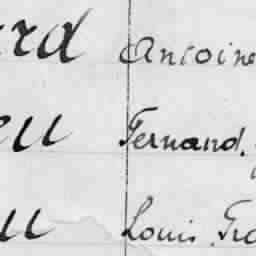 rd Antoine
eu Fernand.
u Louis